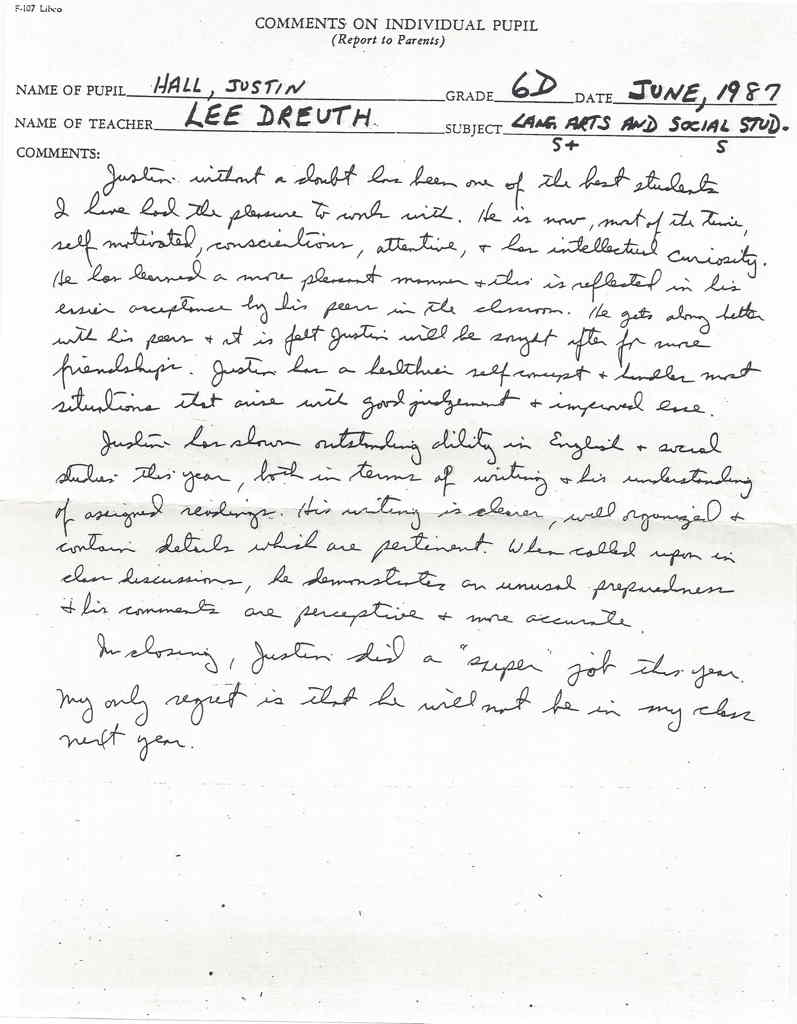 F-107 Libco
COMMENTS ON INDIVIDUAL PUPIL
(Report to Parents)
NAME OF PUPIL HALL, JUSTIN GRADE 6D DATE JUNE, 1987
NAME OF TEACHER LEE DREUTH. SUBJECT LANG. ARTS AND SOCIAL STUD.
S+ S
COMMENTS:
Justin without a doubt has been one of the best students
I have had the pleasure to work with. He is now, most of the time,
self motivated, conscientious, attentive, + has intellectual curiosity.
He has learned a more pleasant manner + this is reflected in his
easier acceptance by his peers in the classroom. He gets along better
with his peers + it is felt Justin will be sought after for more
friendships. Justin has a healthier self concept + handles most
situations that arise with good judgement + improved ease.
Justin has shown outstanding ability in English + social
studies this year, both in terms of writing + his understanding
of assigned readings. His writing is clearer, well organized +
contain details which are pertinent. When called upon in
class discussions, he demonstrates an unusual preparedness
+ his comments are perceptive + more accurate.
In closing, Justin did a "super" job this year.
My only regret is that he will not be in my class
next year.